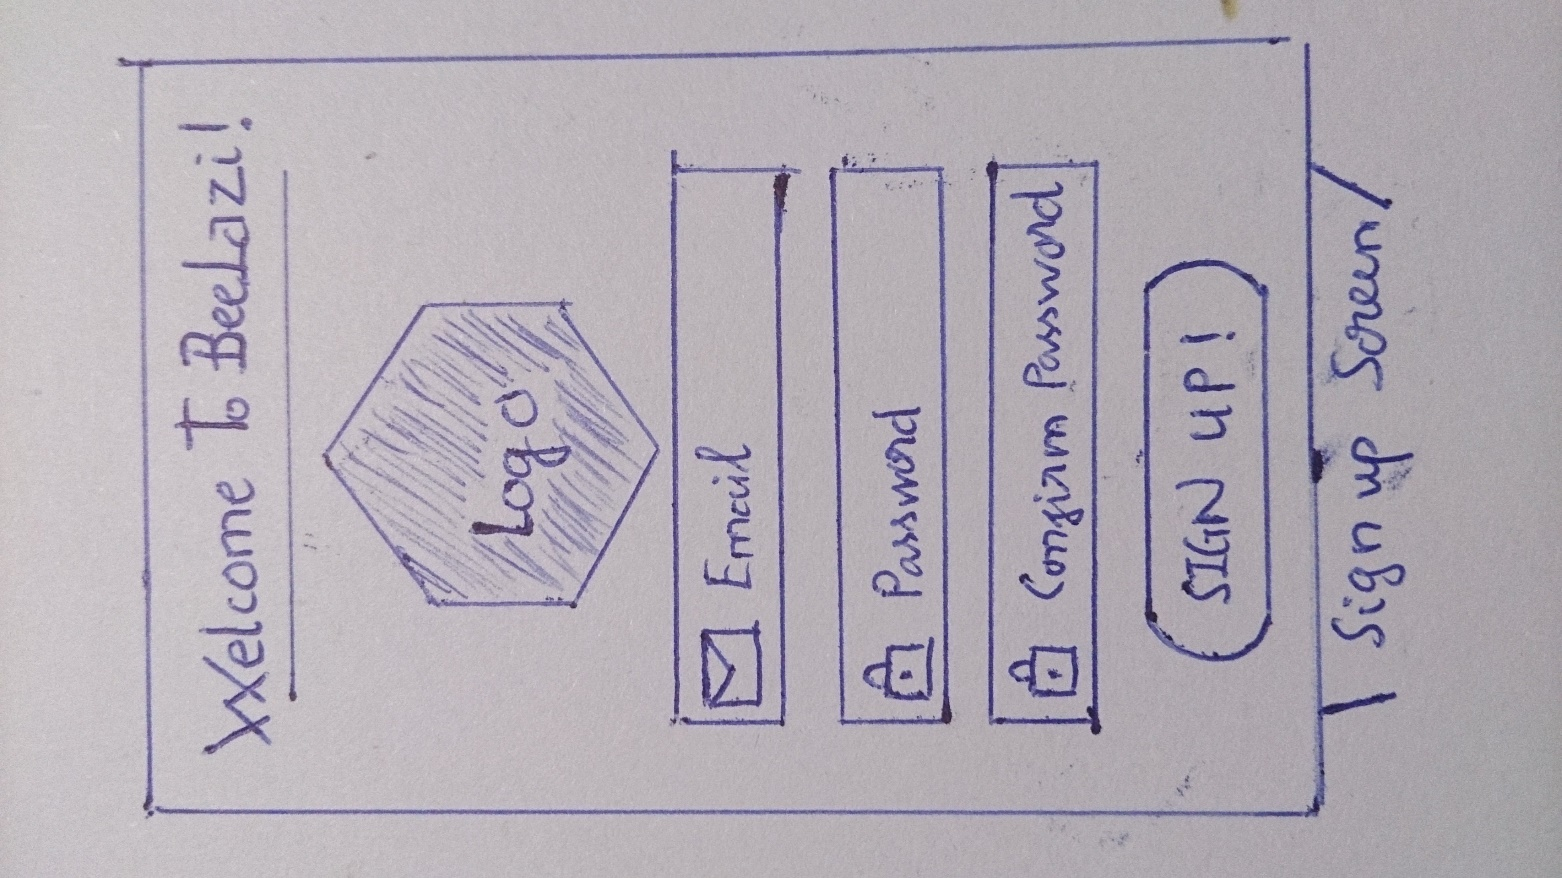 Welcome To Beelazi!
Logo
Email
Password
Confirm Password
SIGN UP!
Sign up Screen